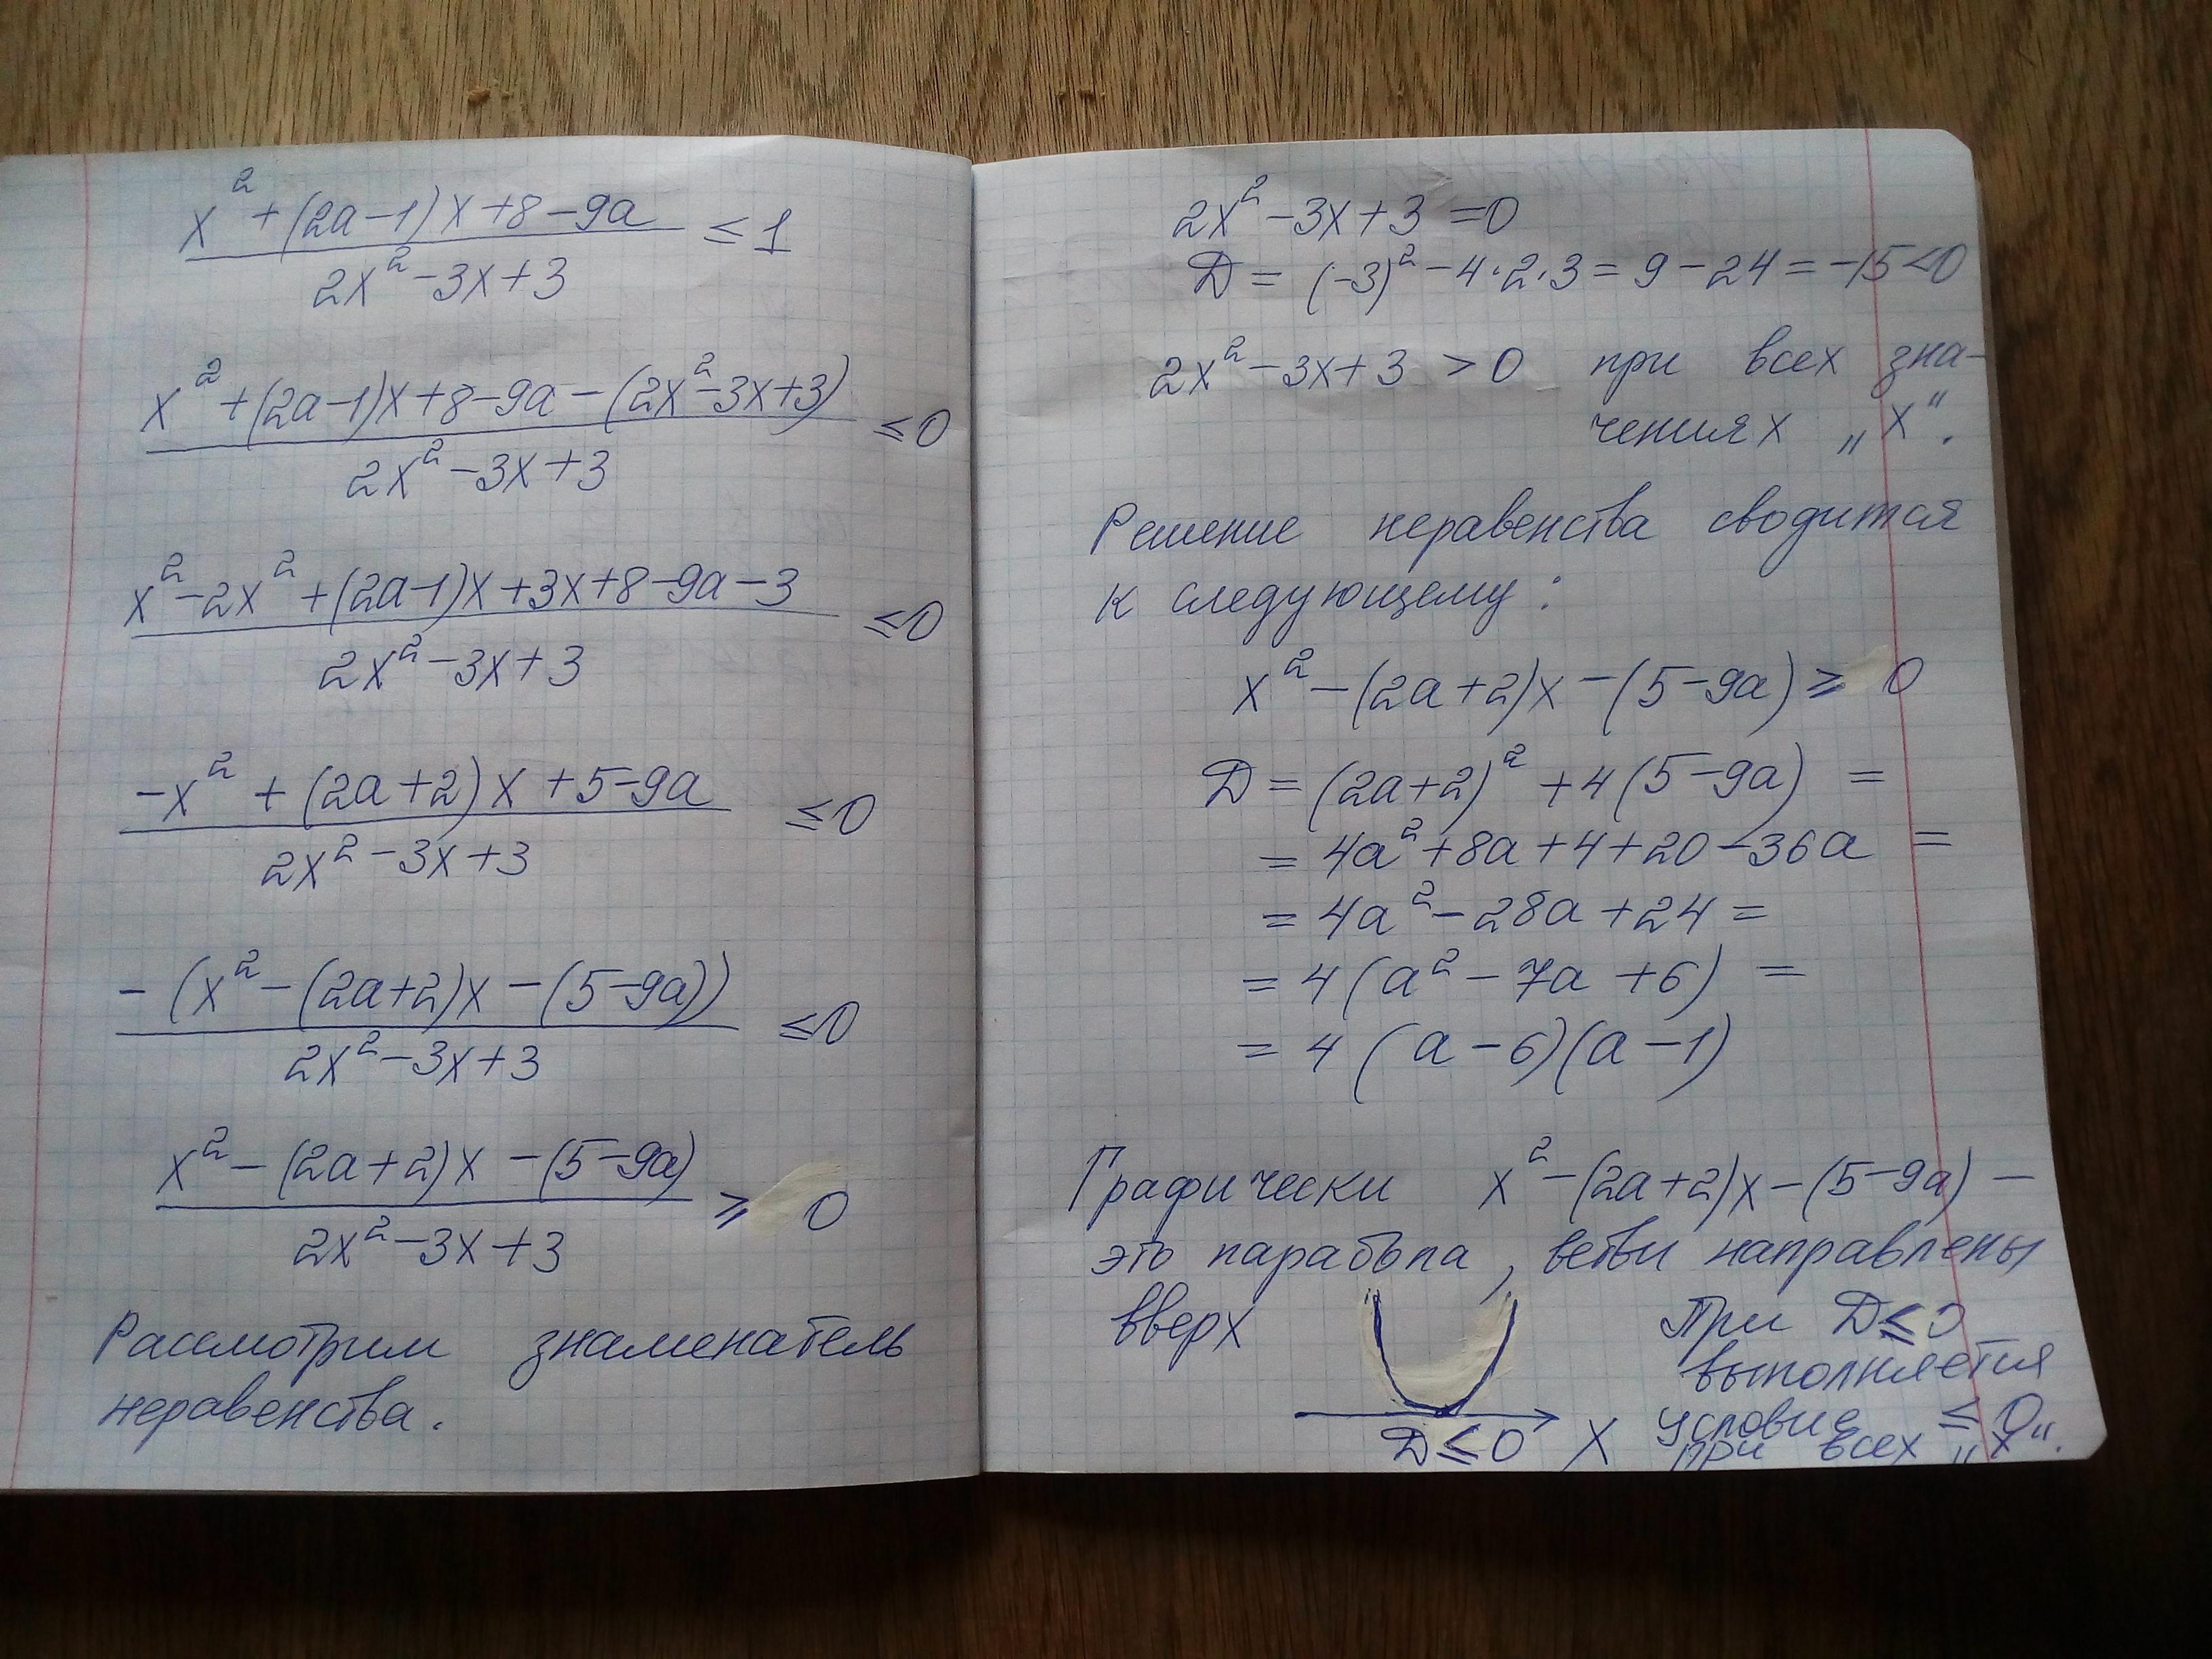 x² + (2a-1)x + 8 - 9a
2x² - 3x + 3
≤ 1
x² + (2a-1)x + 8 - 9a - (2x² - 3x + 3)
2x² - 3x + 3
≤ 0
x² - 2x² + (2a-1)x + 3x + 8 - 9a - 3
2x² - 3x + 3
≤ 0
-x² + (2a+2)x + 5 - 9a
2x² - 3x + 3
≤ 0
-(x² - (2a+2)x - (5-9a))
2x² - 3x + 3
≤ 0
x² - (2a+2)x - (5-9a)
2x² - 3x + 3
≥ 0
Рассмотрим знаменатель
неравенства.
2x² - 3x + 3 = 0
Д = (-3)² - 4·2·3 = 9 - 24 = -15 < 0
2x² - 3x + 3 > 0 при всех зна-
чениях „x“.
Решение неравенства сводится
к следующему:
x² - (2a+2)x - (5-9a) ≥ 0
Д = (2a+2)² + 4(5-9a) =
= 4a² + 8a + 4 + 20 - 36a =
= 4a² - 28a + 24 =
= 4(a² - 7a + 6) =
= 4(a-6)(a-1)
Графически x² - (2a+2)x - (5-9a) —
это парабола, ветви направлены
вверх
Д ≤ 0 X
При Д ≤ 0
выполняется
условие ≤ 0
при всех „x“.